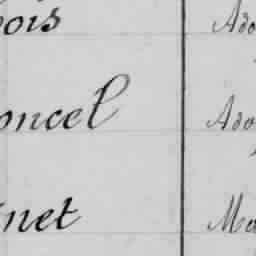 ois Ado
oncel Ado
net Ma